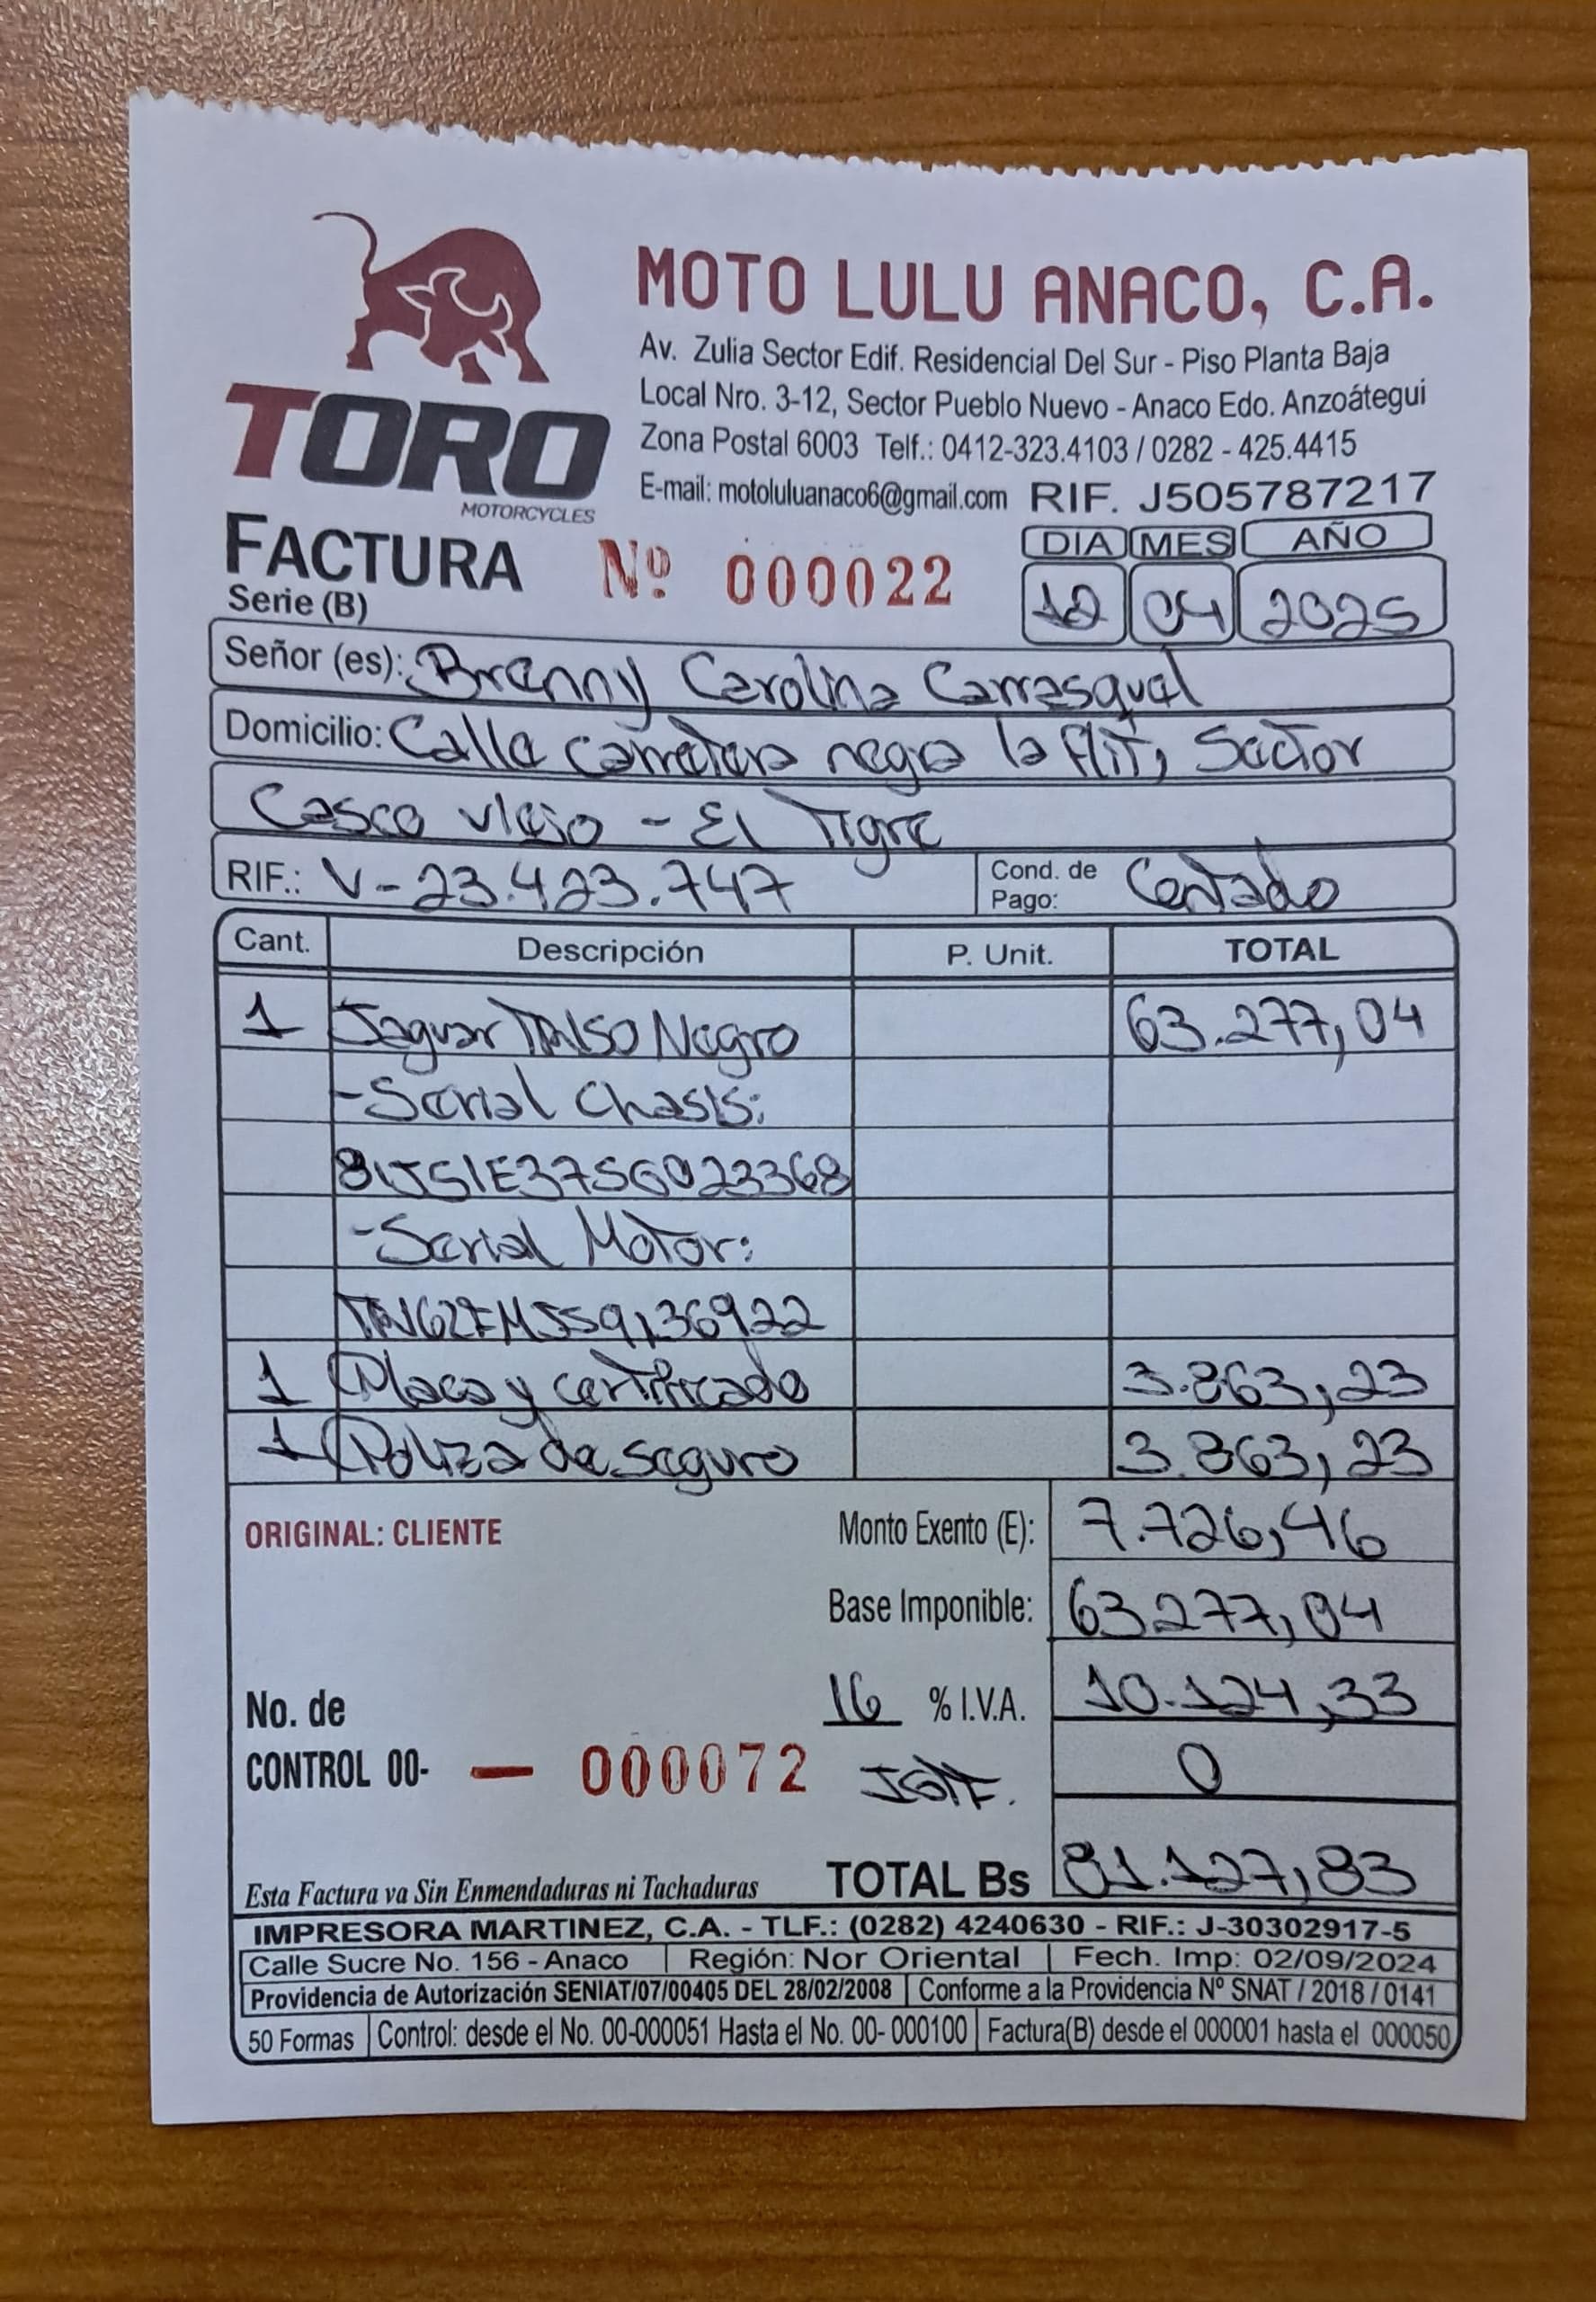 TORO
MOTORCYCLES
MOTO LULU ANACO, C.A.
Av. Zulia Sector Edif. Residencial Del Sur - Piso Planta Baja
Local Nro. 3-12, Sector Pueblo Nuevo - Anaco Edo. Anzoátegui
Zona Postal 6003 Telf.: 0412-323.4103 / 0282 - 425.4415
E-mail: motoluluanaco6@gmail.com RIF. J505787217
FACTURA Nº 000022
Serie (B)
DIA MES AÑO
12 04 2025
Señor (es): Branny Carolina Carrasquel
Domicilio: Calle carretera negra la Flit, Sector
Casco viejo - El Tigre
RIF.: V-23.423.747 Cond. de Pago: Contado
Cant. Descripción P. Unit. TOTAL
1 Jaguar TN150 Negro 63.277,04
-Serial Chasis:
-Serial Motor:
1 Placa y certificado 3.863,23
1 Poliza de seguro 3.863,23
ORIGINAL: CLIENTE
Monto Exento (E): 7.726,46
Base Imponible: 63.277,04
16 % I.V.A. 10.124,33
No. de
CONTROL 00- — 000072
IGTF. 0
Esta Factura va Sin Enmendaduras ni Tachaduras
TOTAL Bs 81.127,83
IMPRESORA MARTINEZ, C.A. - TLF.: (0282) 4240630 - RIF.: J-30302917-5
Calle Sucre No. 156 - Anaco Región: Nor Oriental Fech. Imp: 02/09/2024
Providencia de Autorización SENIAT/07/00405 DEL 28/02/2008 Conforme a la Providencia Nº SNAT / 2018 / 0141
50 Formas Control: desde el No. 00-000051 Hasta el No. 00- 000100 Factura(B) desde el 000001 hasta el 000050